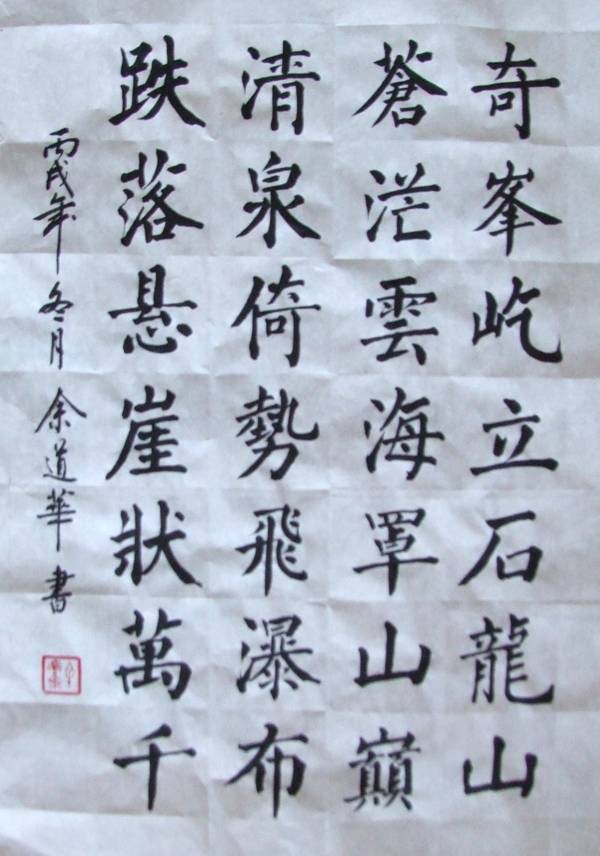 奇峯屹立石龍山
蒼茫雲海罩山巔
清泉倚勢飛瀑布
跌落悬崖狀萬千
丙戌年冬月余道華書